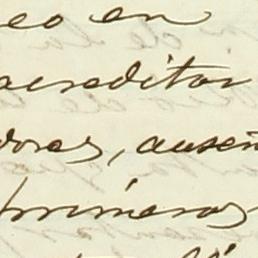 eo en
acreditar
dores, ausen
primeros